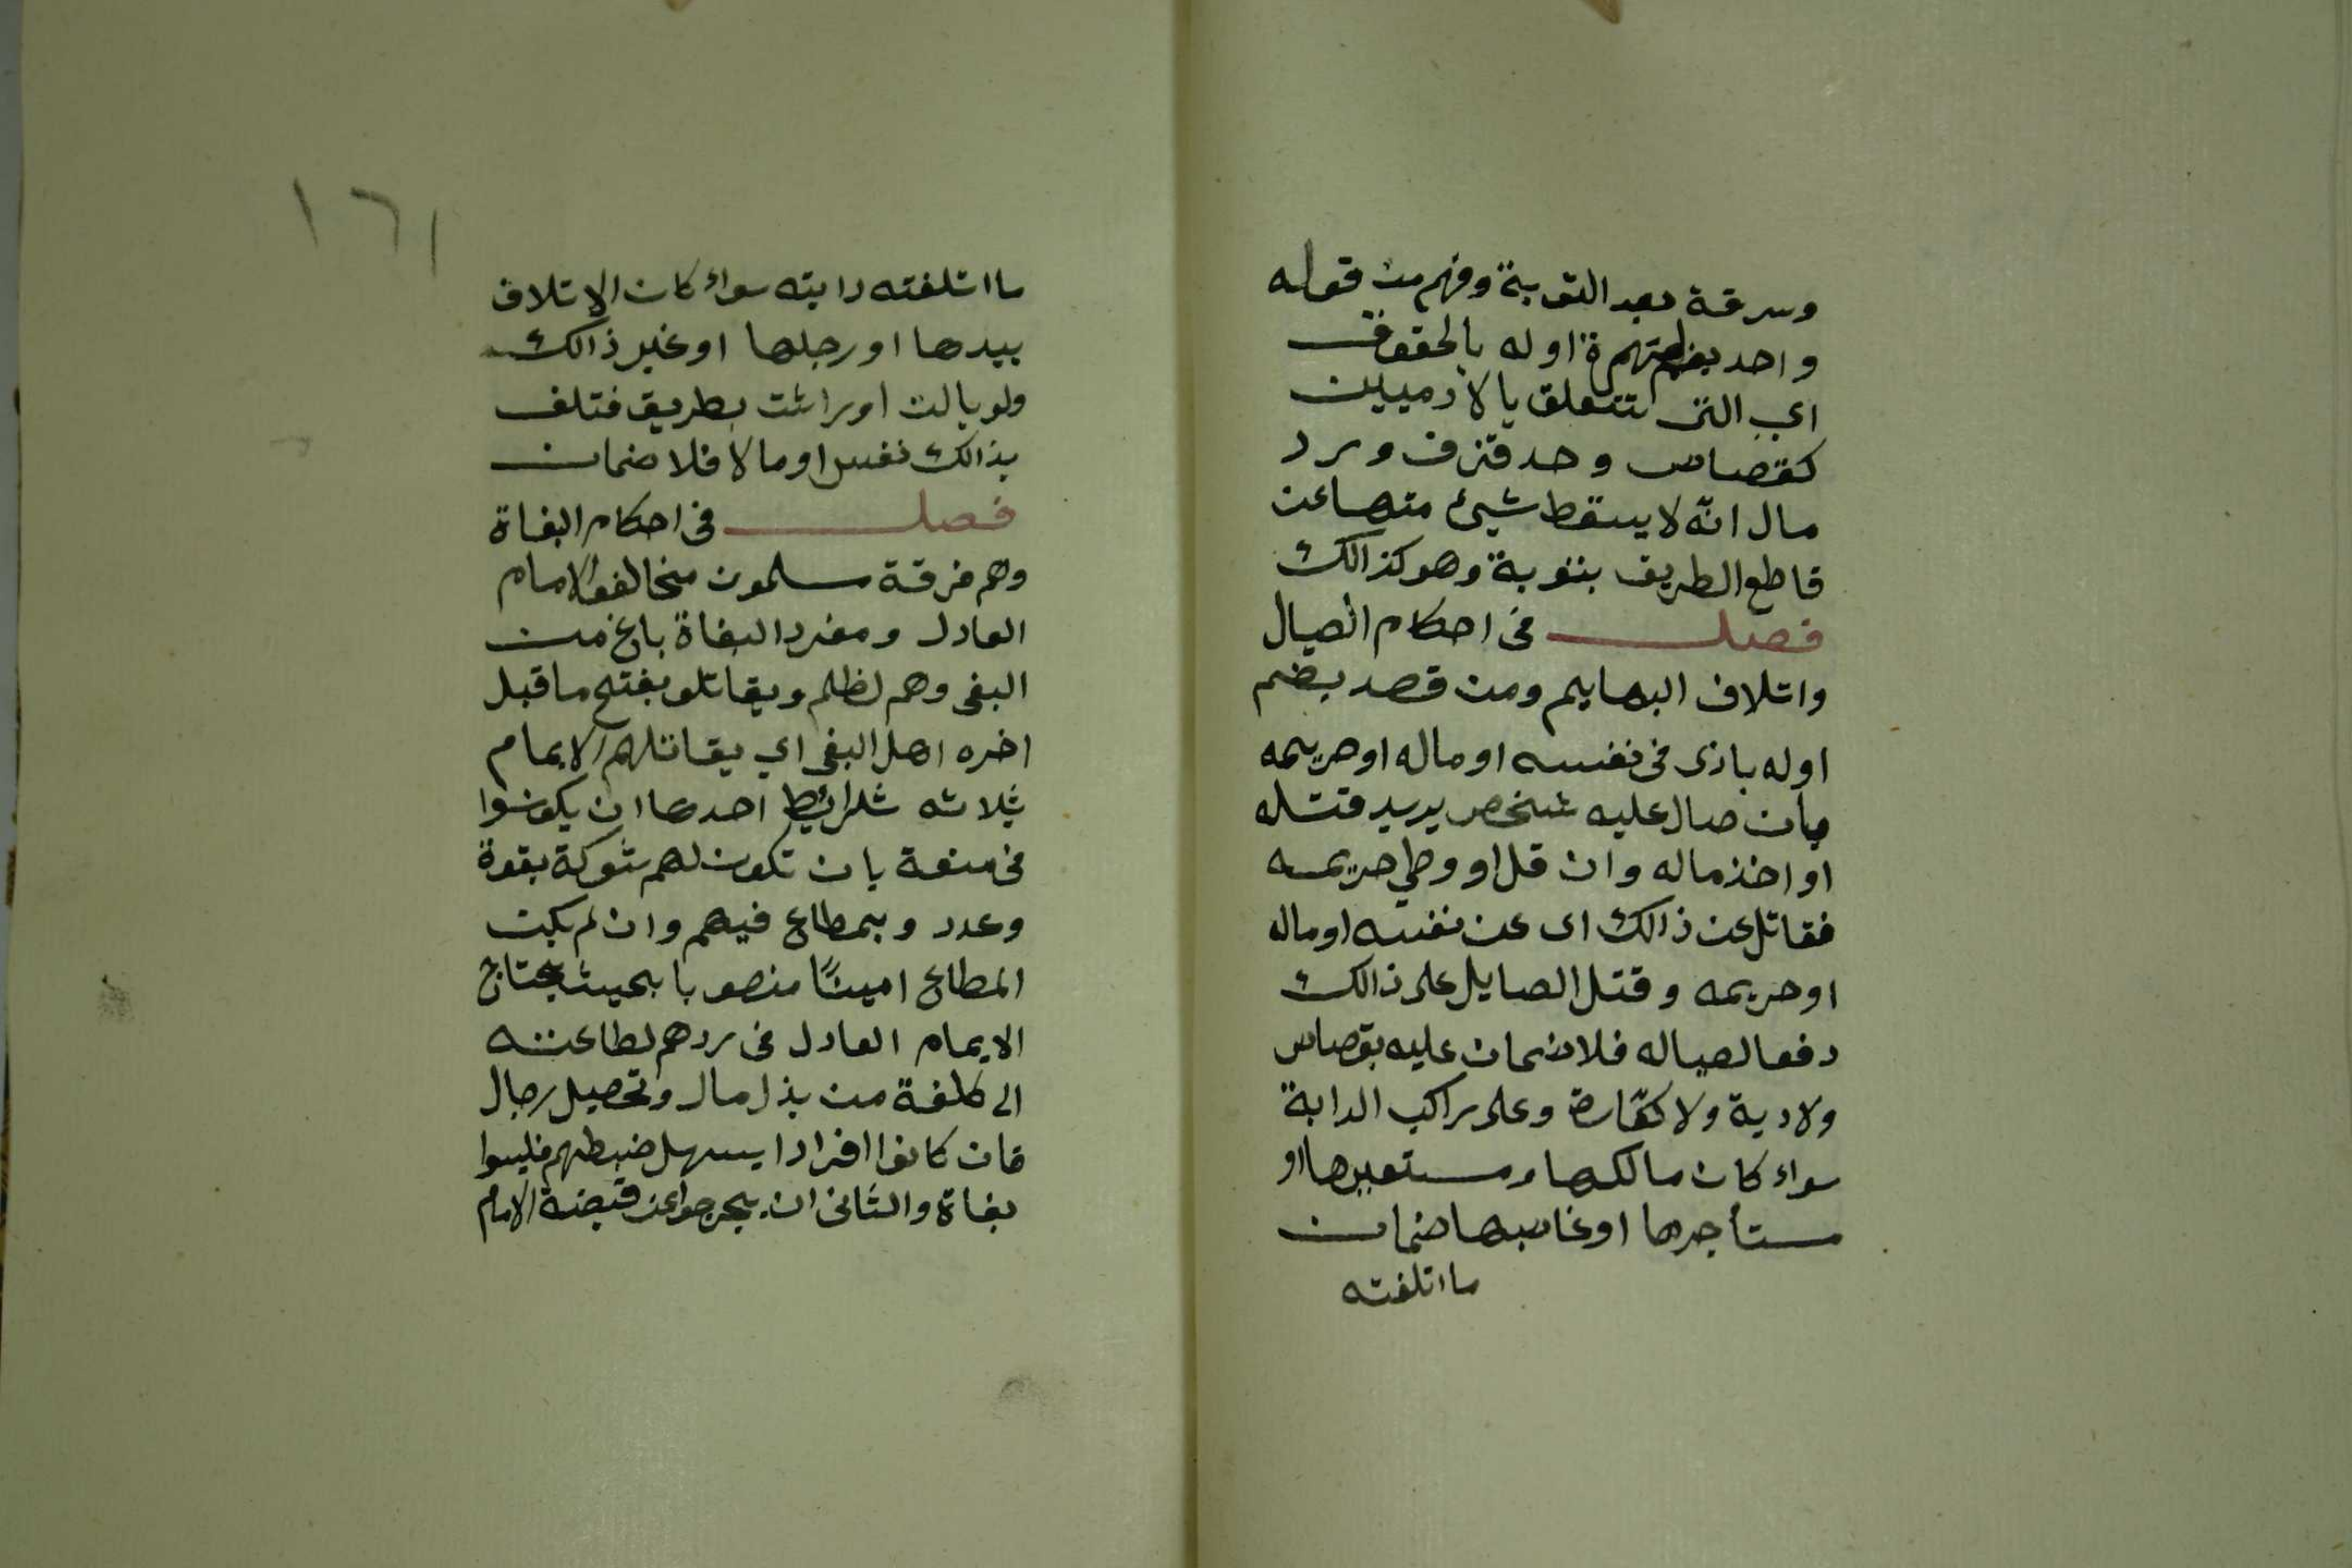 وسرقة بعد التوبة وفهم من قوله
واحد بضم همزة اوله بالحقوق
اي التى تتعلق بالادميين
كقصاص وحد قذف ورد
مال انّه لا يسقط شيئ منها عن
قاطع الطريق بتوبة وهو كذالك
فصل في احكام الصيال
واتلاف البهايم ومن قصد بضم
اوله باذى في نفسه او ماله او حريمه
بان صال عليه شخص يريد قتله
او اخذ ماله وان قل او وطي حريمه
فقاتل عن ذالك اى عن نفسه او ماله
او حريمه وقتل الصايل على ذالك
دفعا لصياله فلا ضمان عليه بقصاص
ولا دية ولا كفّارة وعلى راكب الدابة
سواء كان مالكها ومستعيرها او
مستأجرها او غاصبها ضمان
ما اتلفته
١٦١
ما اتلفته دابته سواء كان الاتلاف
بيدها او رجلها او غير ذالك
ولو بالت او راثت بطريق فتلف
بذالك نفس او مالا فلا ضمان
فصل في احكام البغاة
وهم فرقة مسلمون مخالفوا الامام
العادل ومفرد البغاة باغ من
البغى وهم لظلم ويقاتلو بفتح ما قبل
اخره اهل البغى اي يقاتلهم الايمام
بثلاثه شرائط احدها ان يكونوا
في منعة بان تكون لهم شوكة بقوة
وعدد وبمطاع فيهم وان لم يكن
المطاع اميناً منصوبا بحيث يحتاج
الايمام العادل في ردهم لطاعته
الى كلفة من بذل مال وتحصيل رجال
فان كانوا افرادا يسهل ضبطهم فليسوا
بغاة والثانى ان يخرجوا عن قبضة الامام